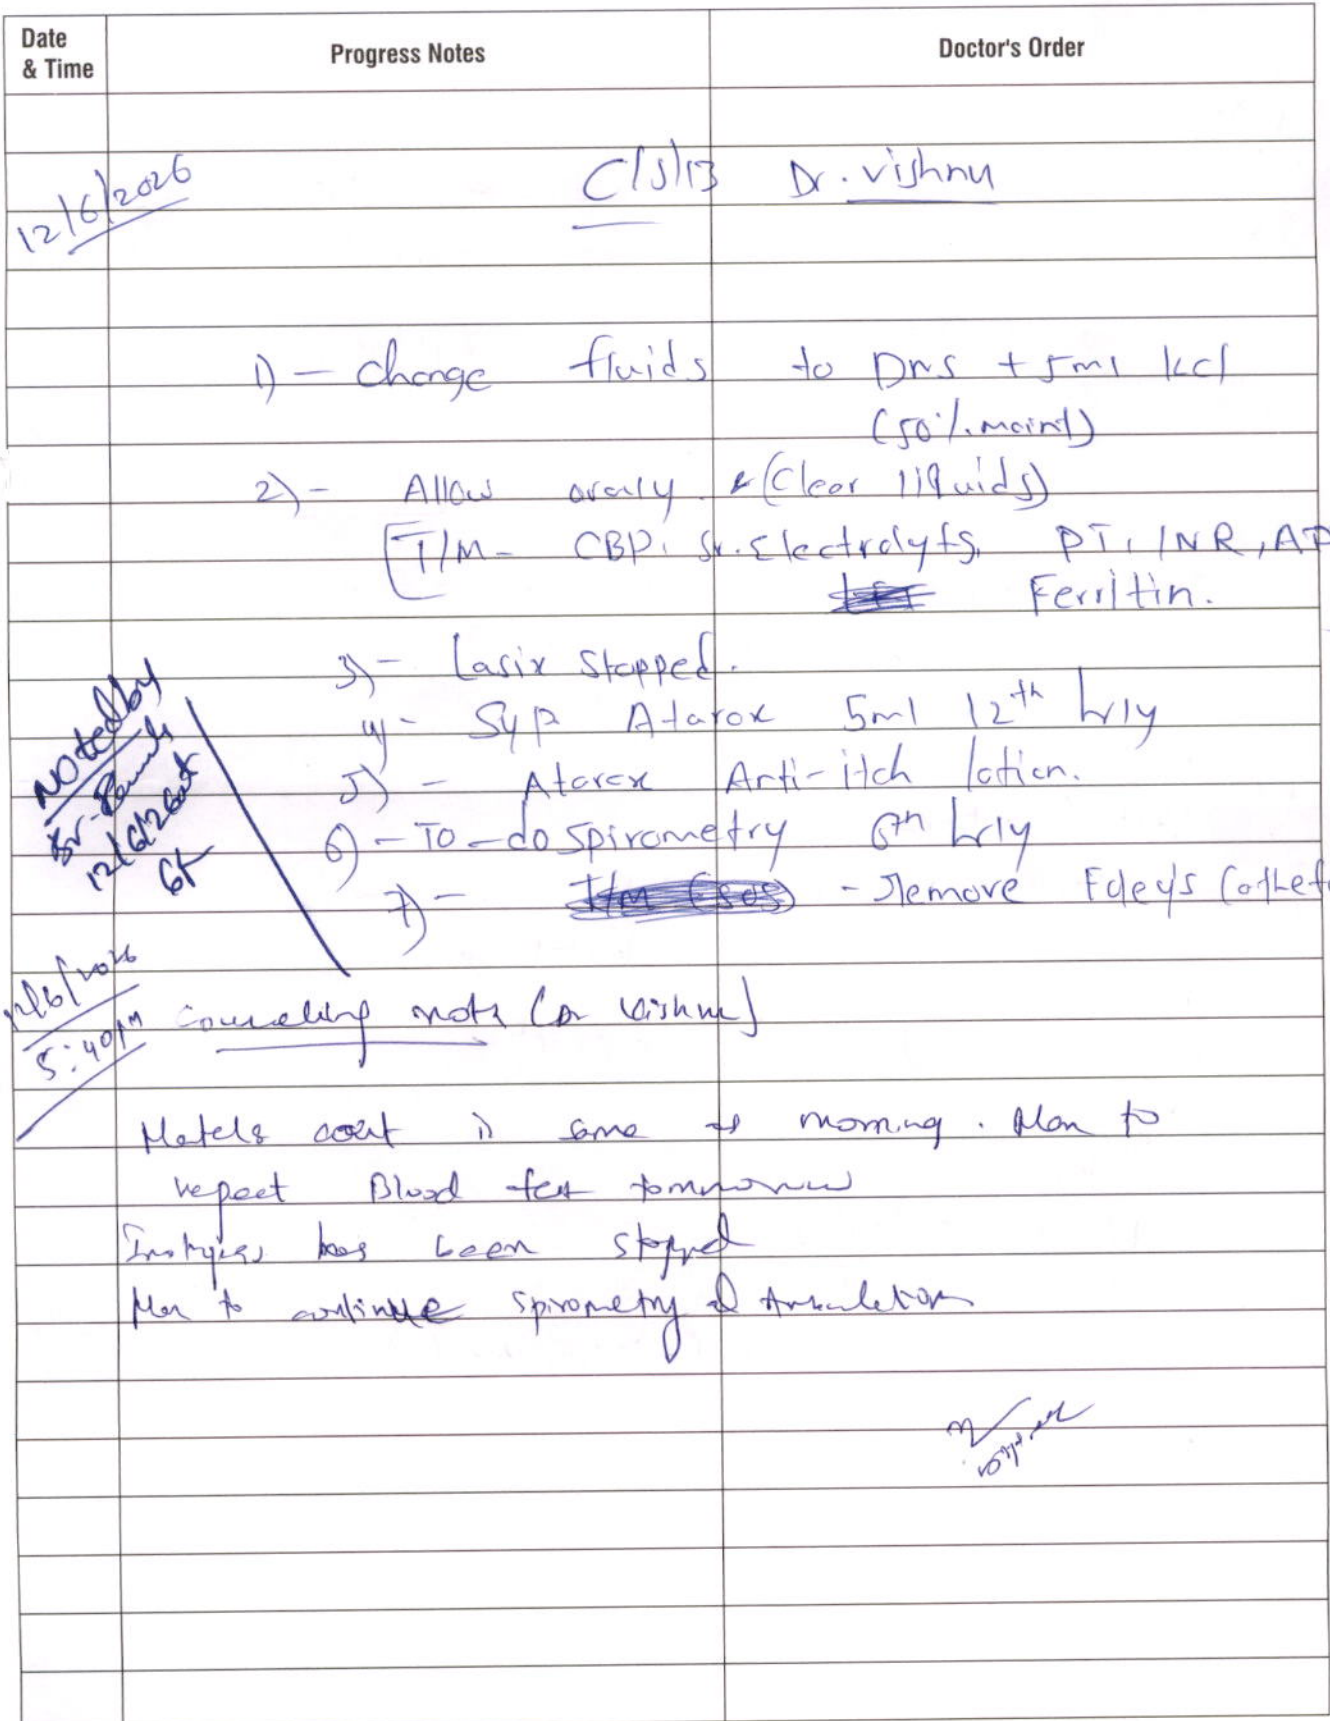 Date & Time
Progress Notes
Doctor's Order
12/6/2026
C/S/B Dr. Vishnu
1) - change fluids to DNS + 5ml kcl
(50% maint)
2) - Allow oraly. (Clear liquids)
T/M - CBP, Sr. Electrolyts, PT, INR, AP
Ferritin.
3) - Lasix stopped.
4) - Syp Atarox 5ml 12th hrly
5) - Atarex Anti-itch lotion.
6) - To - do spirometry 6th hrly
7) - Remove Foley's Cathet
Noted by
12/6/26
12/6/2026
5:40pm
Counseling note (Dr Vishnu)
same as morning. Plan to
repeat Blood test tommorow
has been stopped
Plan to continue spirometry &